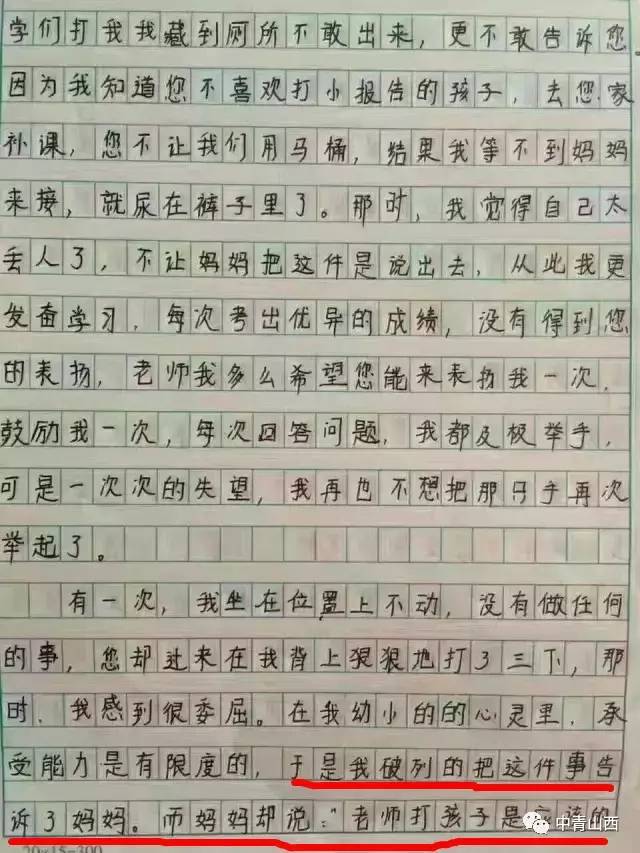 学们打我我藏到厕所不敢出来，更不敢告诉您
因为我知道您不喜欢打小报告的孩子，去您家
补课，您不让我们用马桶，结果我等不到妈妈
来接，就尿在裤子里了。那时，我觉得自己太
丢人了，不让妈妈把这件是说出去，从此我更
发奋学习，每次考出优异的成绩，没有得到您
的表扬，老师我多么希望您能来表扬我一次，
鼓励我一次，每次回答问题，我都及极举手，
可是一次次的失望，我再也不想把那只手再次
举起了。
有一次，我坐在位置上不动，没有做任何
的事，您却过来在我背上狠狠地打了三下，那
时，我感到很委屈。在我幼小的的心灵里，承
受能力是有限度的，于是我破列的把这件事告
诉了妈妈。而妈妈却说：“老师打孩子是应该的
中青山西
20×15=300